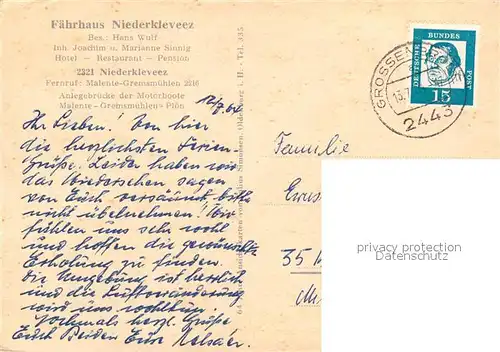 Fährhaus Niederkleveez
Bes.: Hans Wulf
Inh. Joachim u. Marianne Sinnig
Hotel — Restaurant — Pension
2321 Niederkleveez
Fernruf: Malente-Gremsmühlen 2216
Anlegebrücke der Motorboote
Malente - Gremsmühlen - Plön
Ihr Lieben! Von hier
die herzlichsten Ferien-
grüße. Leider haben wir
das Wiedersehen sagen
von Euch versäumt, bitte
nicht übelnehmen! Wir
fühlen uns sehr wohl
und hoffen die gewünschte
Erholung zu finden.
Die Umgebung ist herrlich
und die Luftveränderung
wird uns wohltun.
Nochmals herzl. Grüße
Euch Beiden Eure
Familie
35
DEUTSCHE BUNDES POST
15
GROSSEN
13.
2443
privacy protection
Personendatenschutz